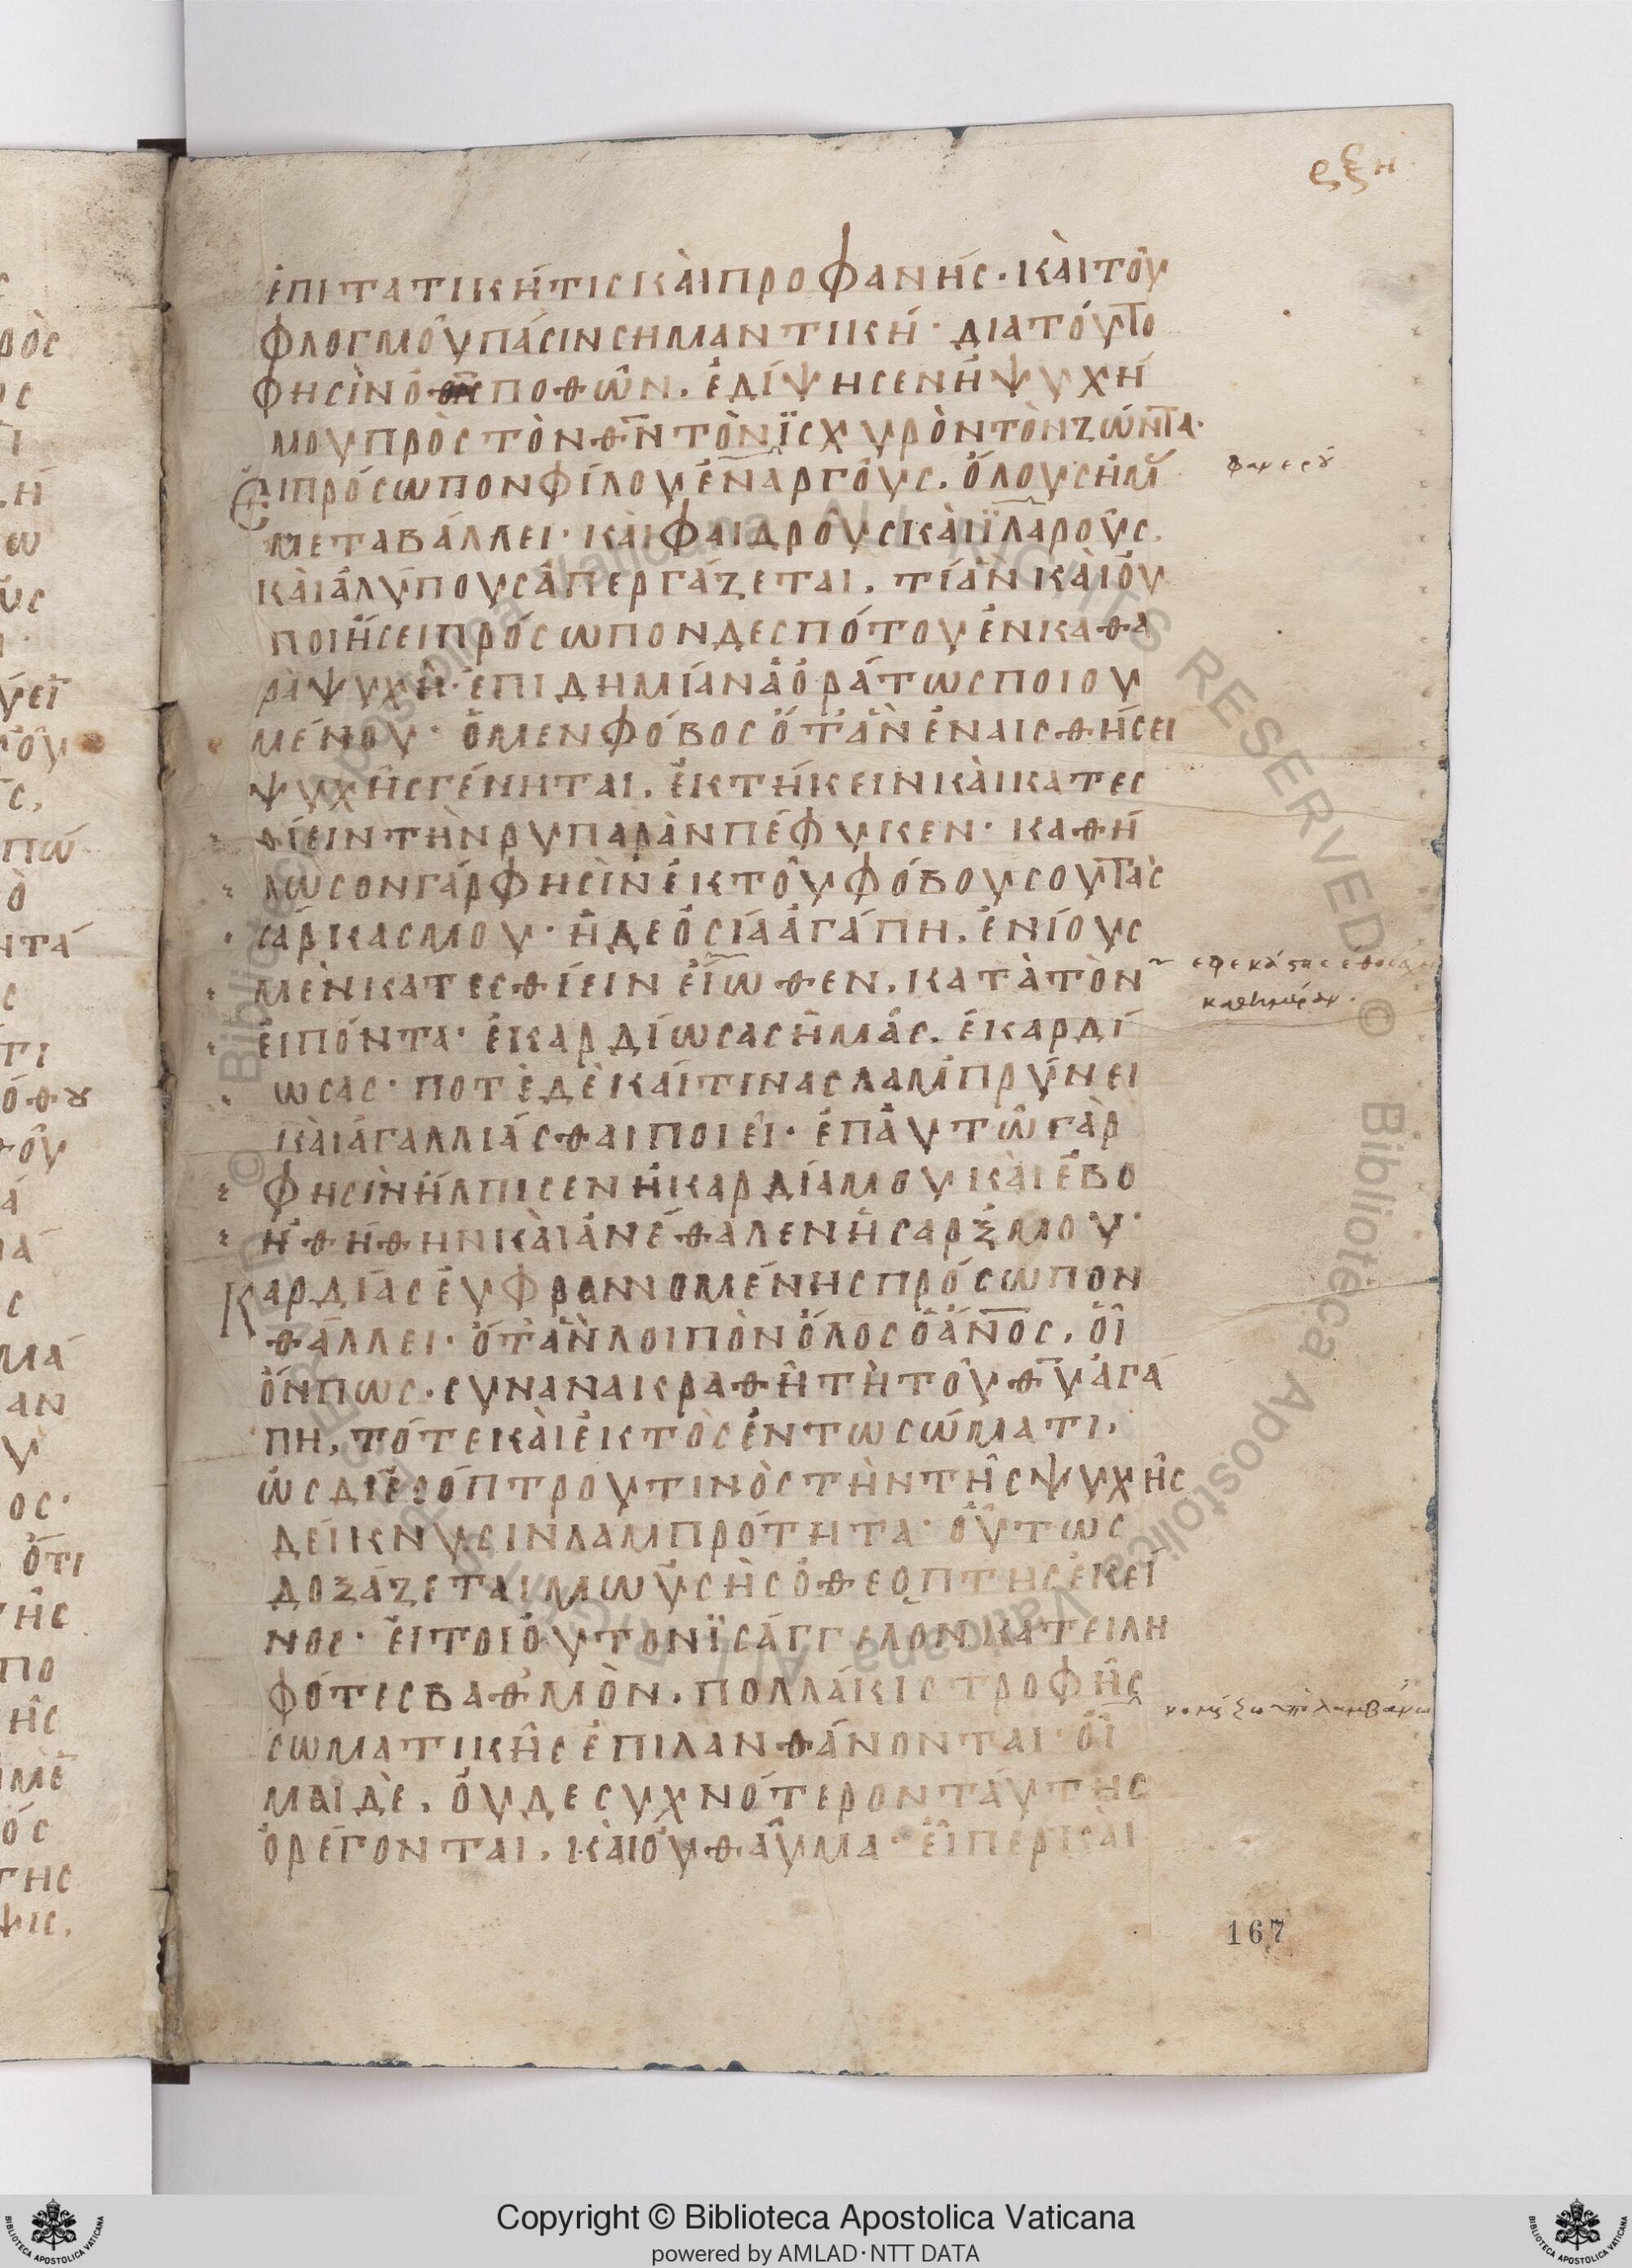 ρξη
ἐπιτατικήτις κὰι προφανής· κὰι τοῦ
φλογμοῦ πάσιν σημαντική· διατόυτο
φησὶν ὁ θ̅ς̅ ποθῶν. ἐδίψησεν ἡ ψυχή
μου πρὸς τὸν θ̅ν̅ τὸν ϊσχυρὸν τὸν ζώντα·
Ἐι πρόσωπον φίλου ἐναργοῦς. ὅλους ἡμ
φανερου
μεταβάλλει· κὰι φαιδροὺς κὰι ϊλαροῦς.
κὰι ἀλύπους ἀπεργάζεται. τί ἀν κὰι ὀυ
ποιήσει πρόσωπον δεσπότου ἐν καθα
ρὰ ψυχῆ· ἐπιδημίαν ἀοράτως ποιου
μένου· ὁ μεν φόβος ὅτ' ἀν ἐν αισθήσει
ψυχῆς γένηται. ἐκτήκειν κὰι κατεσ
θίειν τὴν ρυπαρὰν πέφυκεν· καθή
λωσον γάρ φησὶν ἐκ τοῦ φόβου σου τὰς
σάρκας μου· ἡ δε ὁσία ἀγάπη. ἐνίους
μὲν κατεσθίειν εἴωθεν. κατὰ τὸν
καθημέραν.
ἐιπόντα· ἐκαρδίωσας ἡμάς. ἐκαρδί
ωσας· ποτὲ δὲ κάι τινας λαμπρύνει
κὰι ἀγαλλιάσθαι ποιεῖ· ἐπ' ἀυτῶ γὰρ
φησὶν ἤλπισεν ἡ καρδία μου κὰι ἐβο
ηθήθην κὰι ἀνέθαλεν ἡ σαρξ μου·
Καρδίας ἐυφραινομένης πρόσωπον
θάλλει· ὅτ' ἀν λοιπὸν ὅλος ὁ ἄν̅ο̅ς̅. ὁῖ
όνπως. συνανακραθῆ τὴ τοῦ θ̅υ̅ ἀγά
πη, τότε κὰι ἐκτὸς ἐν τω σώματι,
ὡς δι' ἐσόπτρου τινὸς τὴν τῆς ψυχῆς
δείκνυσιν λαμπρότητα· ὁύτως
δοξάζεται μωϋσὴς ὁ θεόπτης ἐκεῖ
νος· ἑι τοιοῦτον ϊσάγγελον κατειλη
φότες βαθμὸν. πολλάκις τροφῆς
σωματικῆς ἐπιλανθάνονται· ὁῖ
μαι δὲ. ὀυδε συχνότερον τάυτης
ὀρέγονται. κὰι ὀυ θαῦμα· ἐίπερ κὰι
167
Copyright © Biblioteca Apostolica Vaticana
powered by AMLAD·NTT DATA